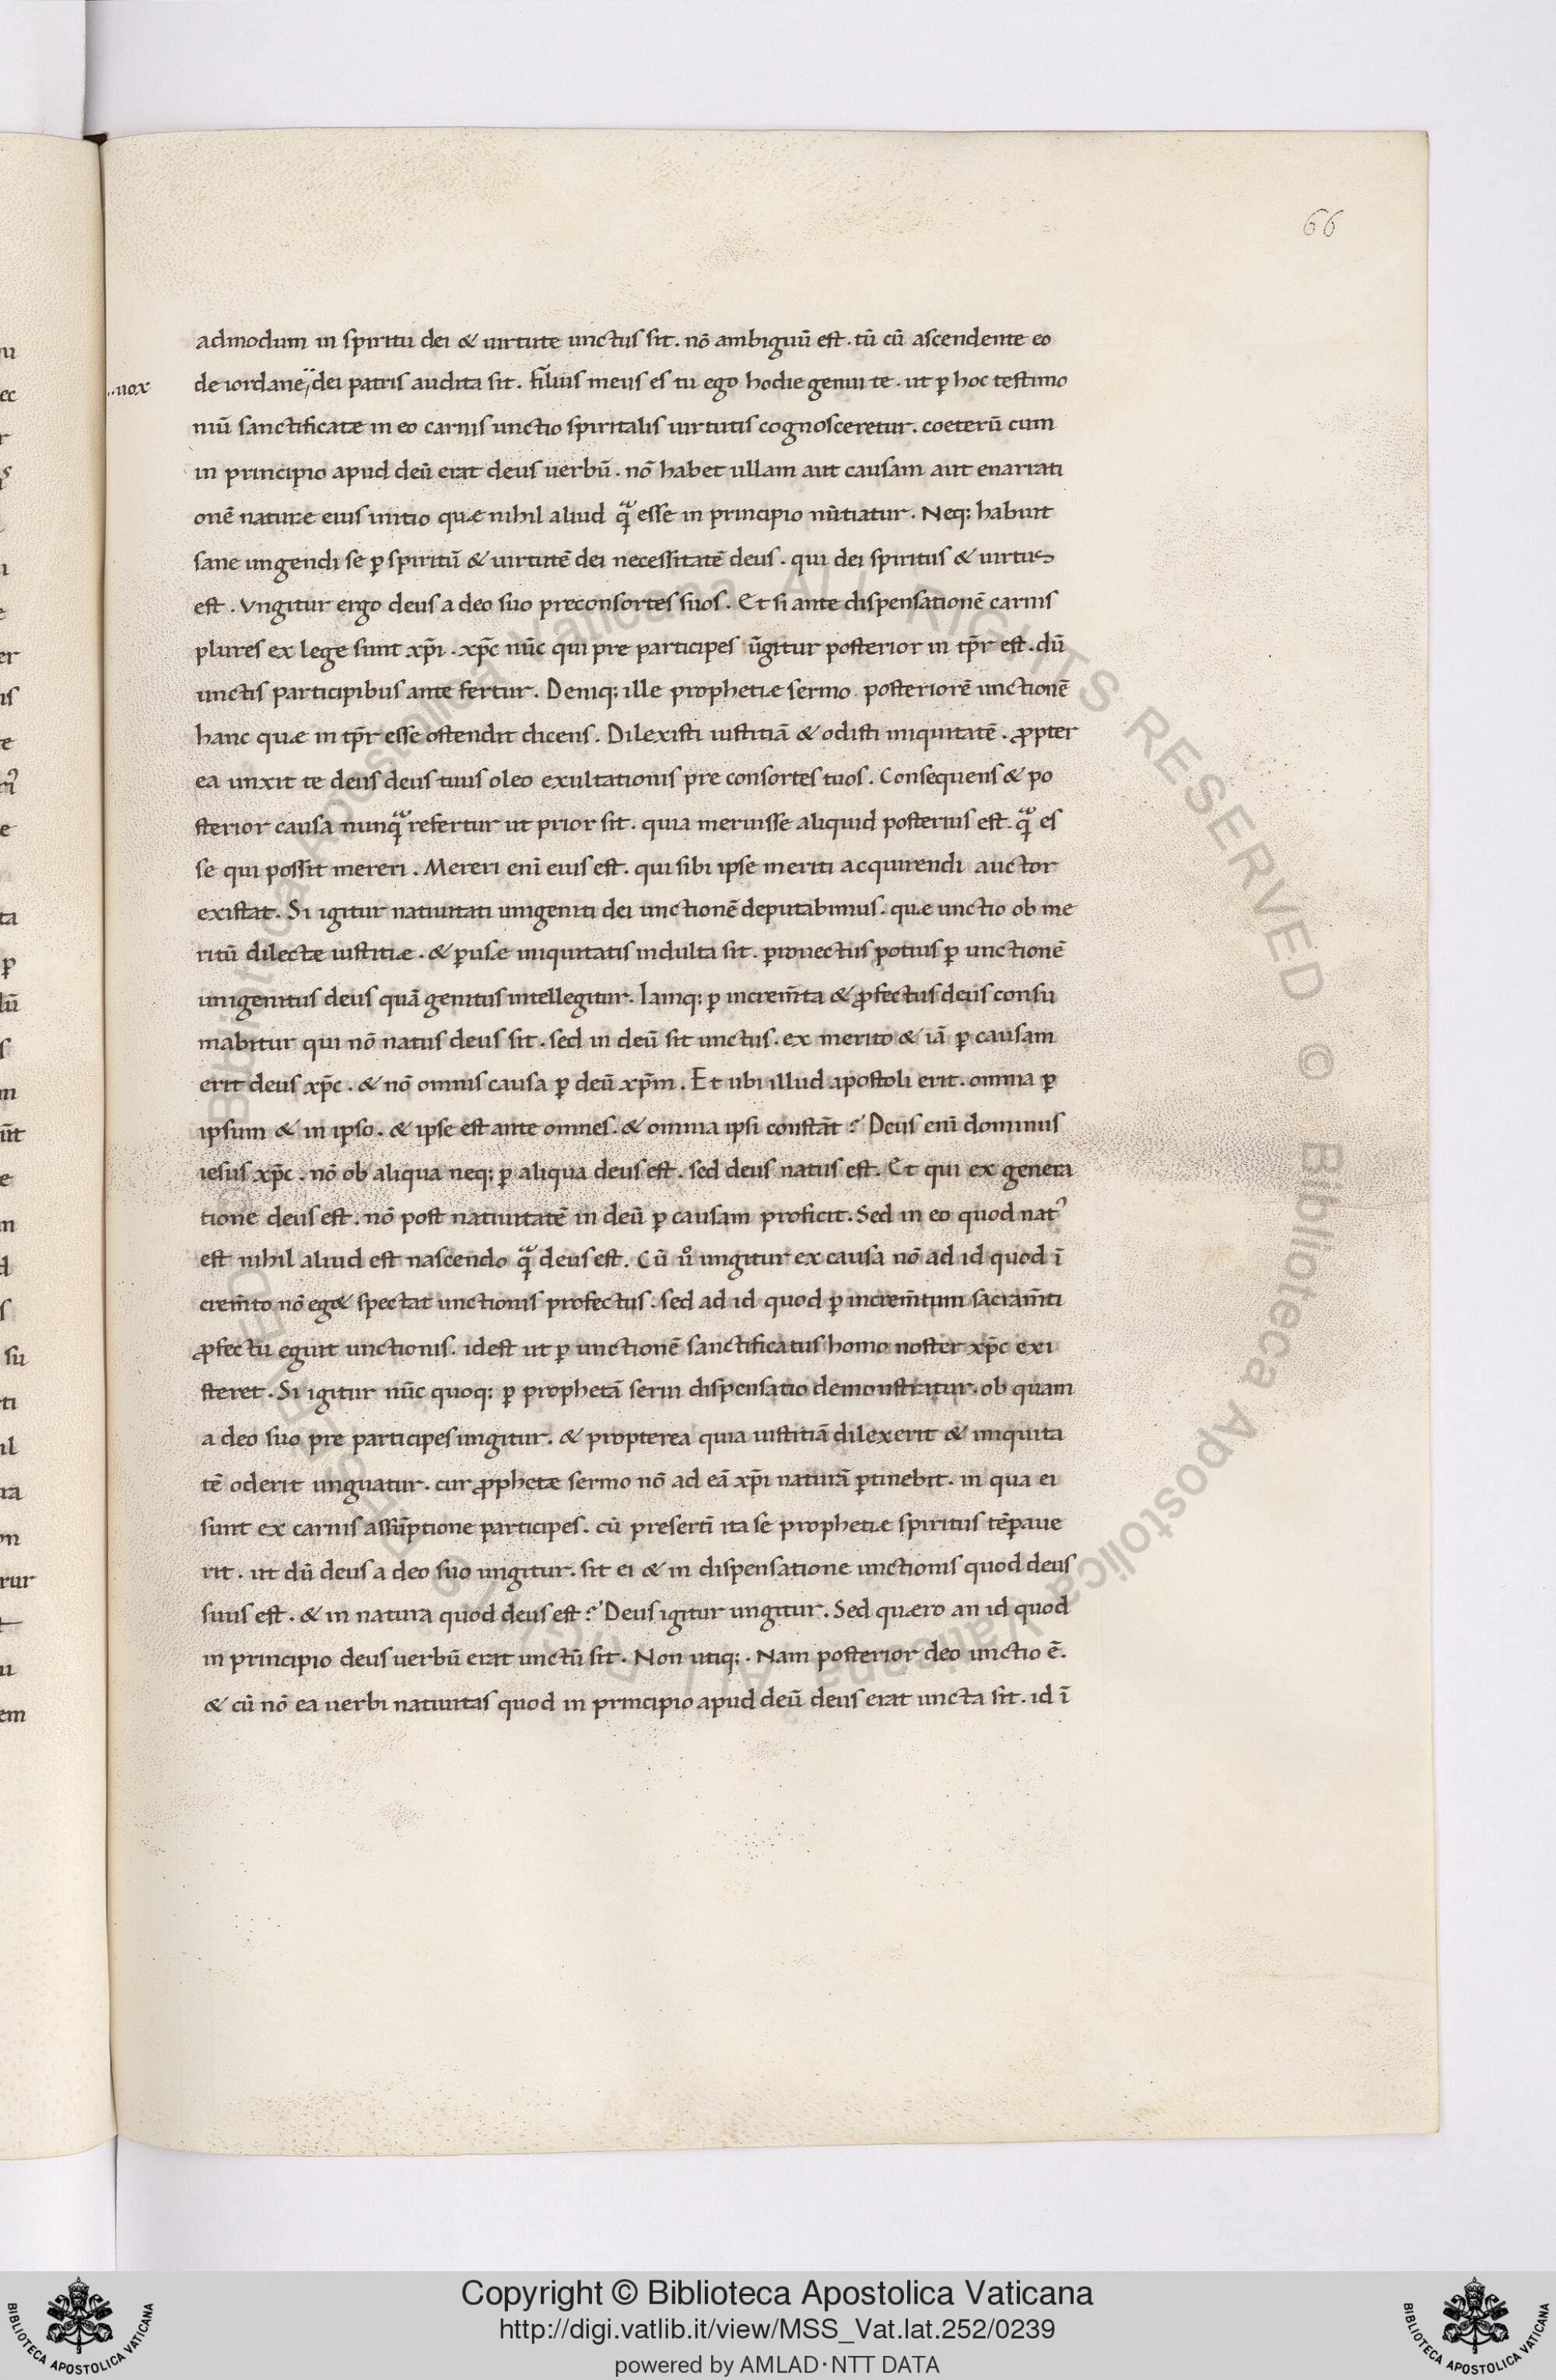 66
admodum in spiritu dei & uirtute unctus sit. nō ambiguū est. tū cū ascendente eo
..uox de iordane dei patris audita sit. filius meus es tu ego hodie genui te. ut ꝑ hoc testimo
niū sanctificatæ in eo carnis unctio spiritalis uirtutis cognosceretur. coeterū cum
in principio apud deū erat deus uerbū. nō habet ullam aut causam aut enarrati
onē nature eius initio quæ nihil aliud qͣ̄ esse in principio nūtiatur. Neq; habuit
sane ungendi se ꝑ spiritū & uirtutē dei necessitatē deus. qui dei spiritus & uirtus
est. Vngitur ergo deus a deo suo preconsortes suos. Et si ante dispensationē carnis
plures ex lege sunt xp̄i. xp̄c nūc qui pre participes ūgitur posterior in tp̄r est. dū
unctis participibus ante fertur. Deniq; ille prophetiæ sermo posteriorē unctionē
hanc quæ in tp̄r esse ostendit dicens. Dilexisti iustitiā & odisti iniquitatē. ꝓpter
ea unxit te deus deus tuus oleo exultationis pre consortes tuos. Consequens & po
sterior causa nunqͣ̄ refertur ut prior sit. quia meruisse aliquid posterius est. qͣ̄ es
se qui possit mereri. Mereri enī eius est. qui sibi ipse meriti acquirendi auctor
existat. Si igitur natiuitati unigeniti dei unctionē deputabimus. quæ unctio ob me
ritū dilectæ iustitiæ. & ꝑusæ iniquitatis indulta sit. prouectus potius ꝑ unctionē
unigenitus deus quā genitus intellegitur. Iamq; ꝑ increm̄ta & ꝓfectus deus consu
mabitur qui nō natus deus sit. sed in deū sit unctus. ex merito & iā ꝑ causam
erit deus xp̄c. & nō omnis causa ꝑ deū xp̄m. Et ubi illud apostoli erit. omnia ꝑ
ipsum & in ipso. & ipse est ante omnes. & omnia ipsi constāt? Deus enī dominus
iesus xp̄c. nō ob aliqua neq; ꝑ aliqua deus est. sed deus natus est. Et qui ex genera
tione deus est. nō post natiuitatē in deū ꝑ causam proficit. Sed in eo quod natꝰ
est nihil aliud est nascendo qͣ̄ deus est. Cū uͦ ungitur ex causa nō ad id quod ī
crem̄to nō eg& spectat unctionis profectus. sed ad id quod ꝑ increm̄tum sacram̄ti
ꝓfectu eguit unctionis. idest ut ꝑ unctionē sanctificatus homo noster xp̄c exi
steret. Si igitur nūc quoq; ꝑ prophetā serui dispensatio demonstratur. ob quam
a deo suo pre participes ungitur. & propterea quia iustitiā dilexerit & iniquita
tē oderit unguatur. cur ꝓphetæ sermo nō ad eā xp̄i naturā ꝑtinebit. in qua ei
sunt ex carnis assūptione participes. cū presertī ita se prophetiæ spiritus tēꝑaue
rit. ut dū deus a deo suo ungitur. sit ei & in dispensatione unctionis quod deus
suus est. & in natura quod deus est? Deus igitur ungitur. Sed quæro an id quod
in principio deus uerbū erat unctū sit. Non utiq;. Nam posterior deo unctio ē.
& cū nō ea uerbi natiuitas quod in principio apud deū deus erat uncta sit. id ī
Biblioteca Apostolica Vaticana ALL RIGHTS RESERVED © Biblioteca Apostolica Vaticana
Copyright © Biblioteca Apostolica Vaticana
http://digi.vatlib.it/view/MSS_Vat.lat.252/0239
powered by AMLAD·NTT DATA
BIBLIOTECA APOSTOLICA VATICANA
BIBLIOTECA APOSTOLICA VATICANA